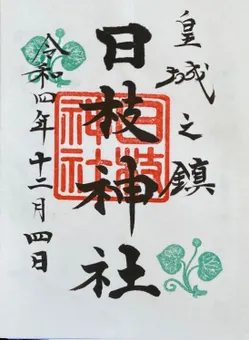 皇城之鎮
日枝神社
日枝
神社
令和四年十二月四日